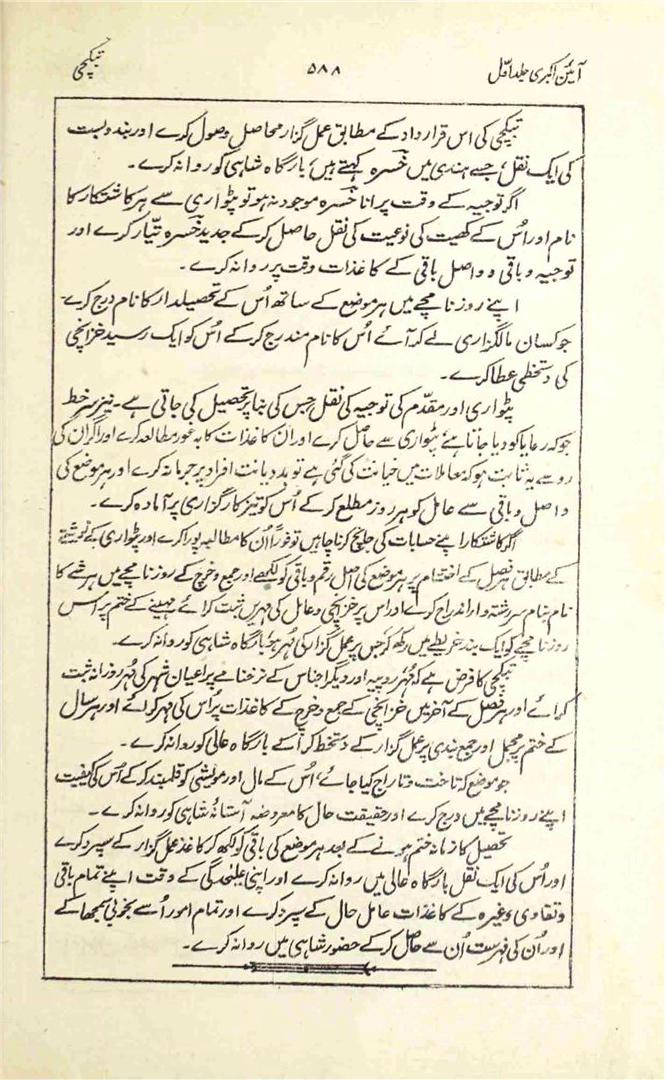 آئین اکبری جلد اوّل
۵۸۸
تپکچی
تپکچی کی اس قرارداد کے مطابق عمل گزار محاصل وصول کرے اور بندوبست
کی ایک نقل، جسے ہندی میں خسرہ کہتے ہیں، بارگاہ شاہی کو روانہ کرے۔
اگر توجیہ کے وقت پرانا خسرہ موجود نہ ہو تو پٹواری سے ہر کاشتکار کا
نام اور اُس کے کھیت کی نوعیت کی نقل حاصل کر کے جدید خسرہ تیّار کرے اور
توجیہ و باقی و واصل باقی کے کاغذات وقت پر روانہ کرے۔
اپنے روزنامچے میں ہر موضع کے ساتھ اُس کے تحصیلدار کا نام درج کرے۔
جو کسان مالگزاری لے کر آئے اُس کا نام مندرج کر کے اُس کو ایک رسید خزانچی
کی دستخطی عطا کرے۔
پٹواری اور مقدّم کی توجیہ کی نقل جس کی بنا پر تحصیل کی جاتی ہے۔ نیز سرخط
جو کہ رعایا کو دیا جاتا ہے، پٹواری سے حاصل کرے اور ان کاغذات کا بہ غور مطالعہ کرے اور اگر ان کی
رو سے یہ ثابت ہو کہ معاملات میں خیانت کی گئی ہے تو بددیانت افراد پر جرمانہ کرے اور ہر موضع کی
واصل و باقی سے عامل کو ہر روز مطلع کر کے اُس کو تیز کارگزاری پر آمادہ کرے۔
اگر کاشتکار اپنے حسابات کی جانچ کرنا چاہیں تو فوراً اُن کا مطالبہ پورا کرے اور پٹواری کے نوشتے
کے مطابق ہر فصل کے اختتام پر ہر موضع کی اصل رقم و باقی کو لکھے اور جمع و خرچ کے روزنامچے میں ہر شے کا
نام بنام سررشتہ وار اندراج کرے اور اس پر خزانچی و عامل کی مہریں ثبت کرائے مہینے کے ختم پر اس
روزنامچے کو ایک بند خریطے میں رکھ کر جس پر عمل گزار کی مُہر ہو بارگاہ شاہی کو روانہ کرے۔
تپکچی کا فرض ہے کہ مُہر روپیہ اور دیگر اجناس کے نرخنامے پر اعیان شہر کی مُہر روزانہ ثبت
کرائے اور ہر فصل کے آخر میں خزانچی کے جمع و خرچ کے کاغذات پر اُس کی مہر کرائے اور ہر سال
کے ختم پر مجمل اور جمع بندی پر عمل گزار کے دستخط کرا کے بارگاہ عالی کو روانہ کرے۔
جو موضع کہ تاخت و تاراج کیا جائے، اُس کے مال اور مویشی کو قلمبند کر کے اُس کی کیفیت
اپنے روزنامچے میں درج کرے اور حقیقت حال کا معروضہ آستانۂ شاہی کو روانہ کرے۔
تحصیل کا زمانہ ختم ہونے کے بعد ہر موضع کی باقی کو لکھ کر کاغذ عمل گزار کے سپرد کرے
اور اُس کی ایک نقل بارگاہ عالی میں روانہ کرے اور اپنی علیٰحدگی کے وقت اپنے تمام باقی
و تقاوی وغیرہ کے کاغذات عامل حال کے سپرد کرے اور تمام امور اُسے بخوبی سمجھا کے
اور اُن کی فہرست اُن سے حاصل کر کے حضور شاہی میں روانہ کرے۔